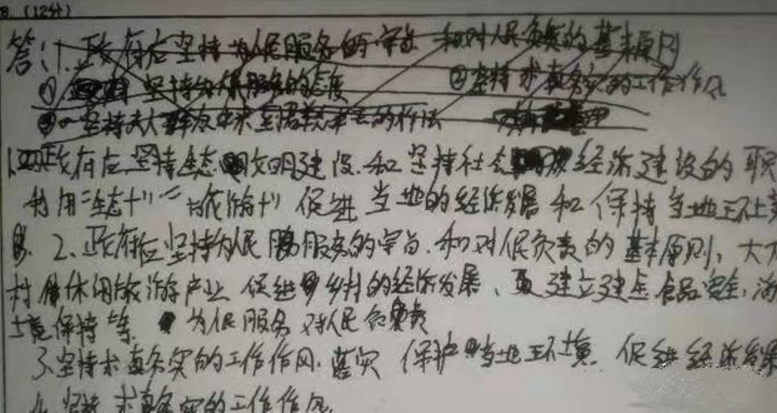 8.（12分）
答：1.政府应坚持为人民服务的宗旨 和对人民负责的基本原则
① 坚持为人民服务的态度 ②坚持求真务实的工作作风
③ 坚持从人群众中来到群众中去的
1.政府应坚持生态文明建设.和坚持社会 经济建设的职
利用"生态+""旅游+"促进当地的经济发展和保持当地环境
2.政府应坚持为人民服务的宗旨.和对人民负责的基本原则，大
村休闲旅游产业 促进乡村的经济发展、建立健全食品安全，
境保持等. 为人民服务 对人民负责
3.坚持求真务实的工作作风. 落实 保护当地环境. 促进经济发展
4.坚持求真务实的工作作风